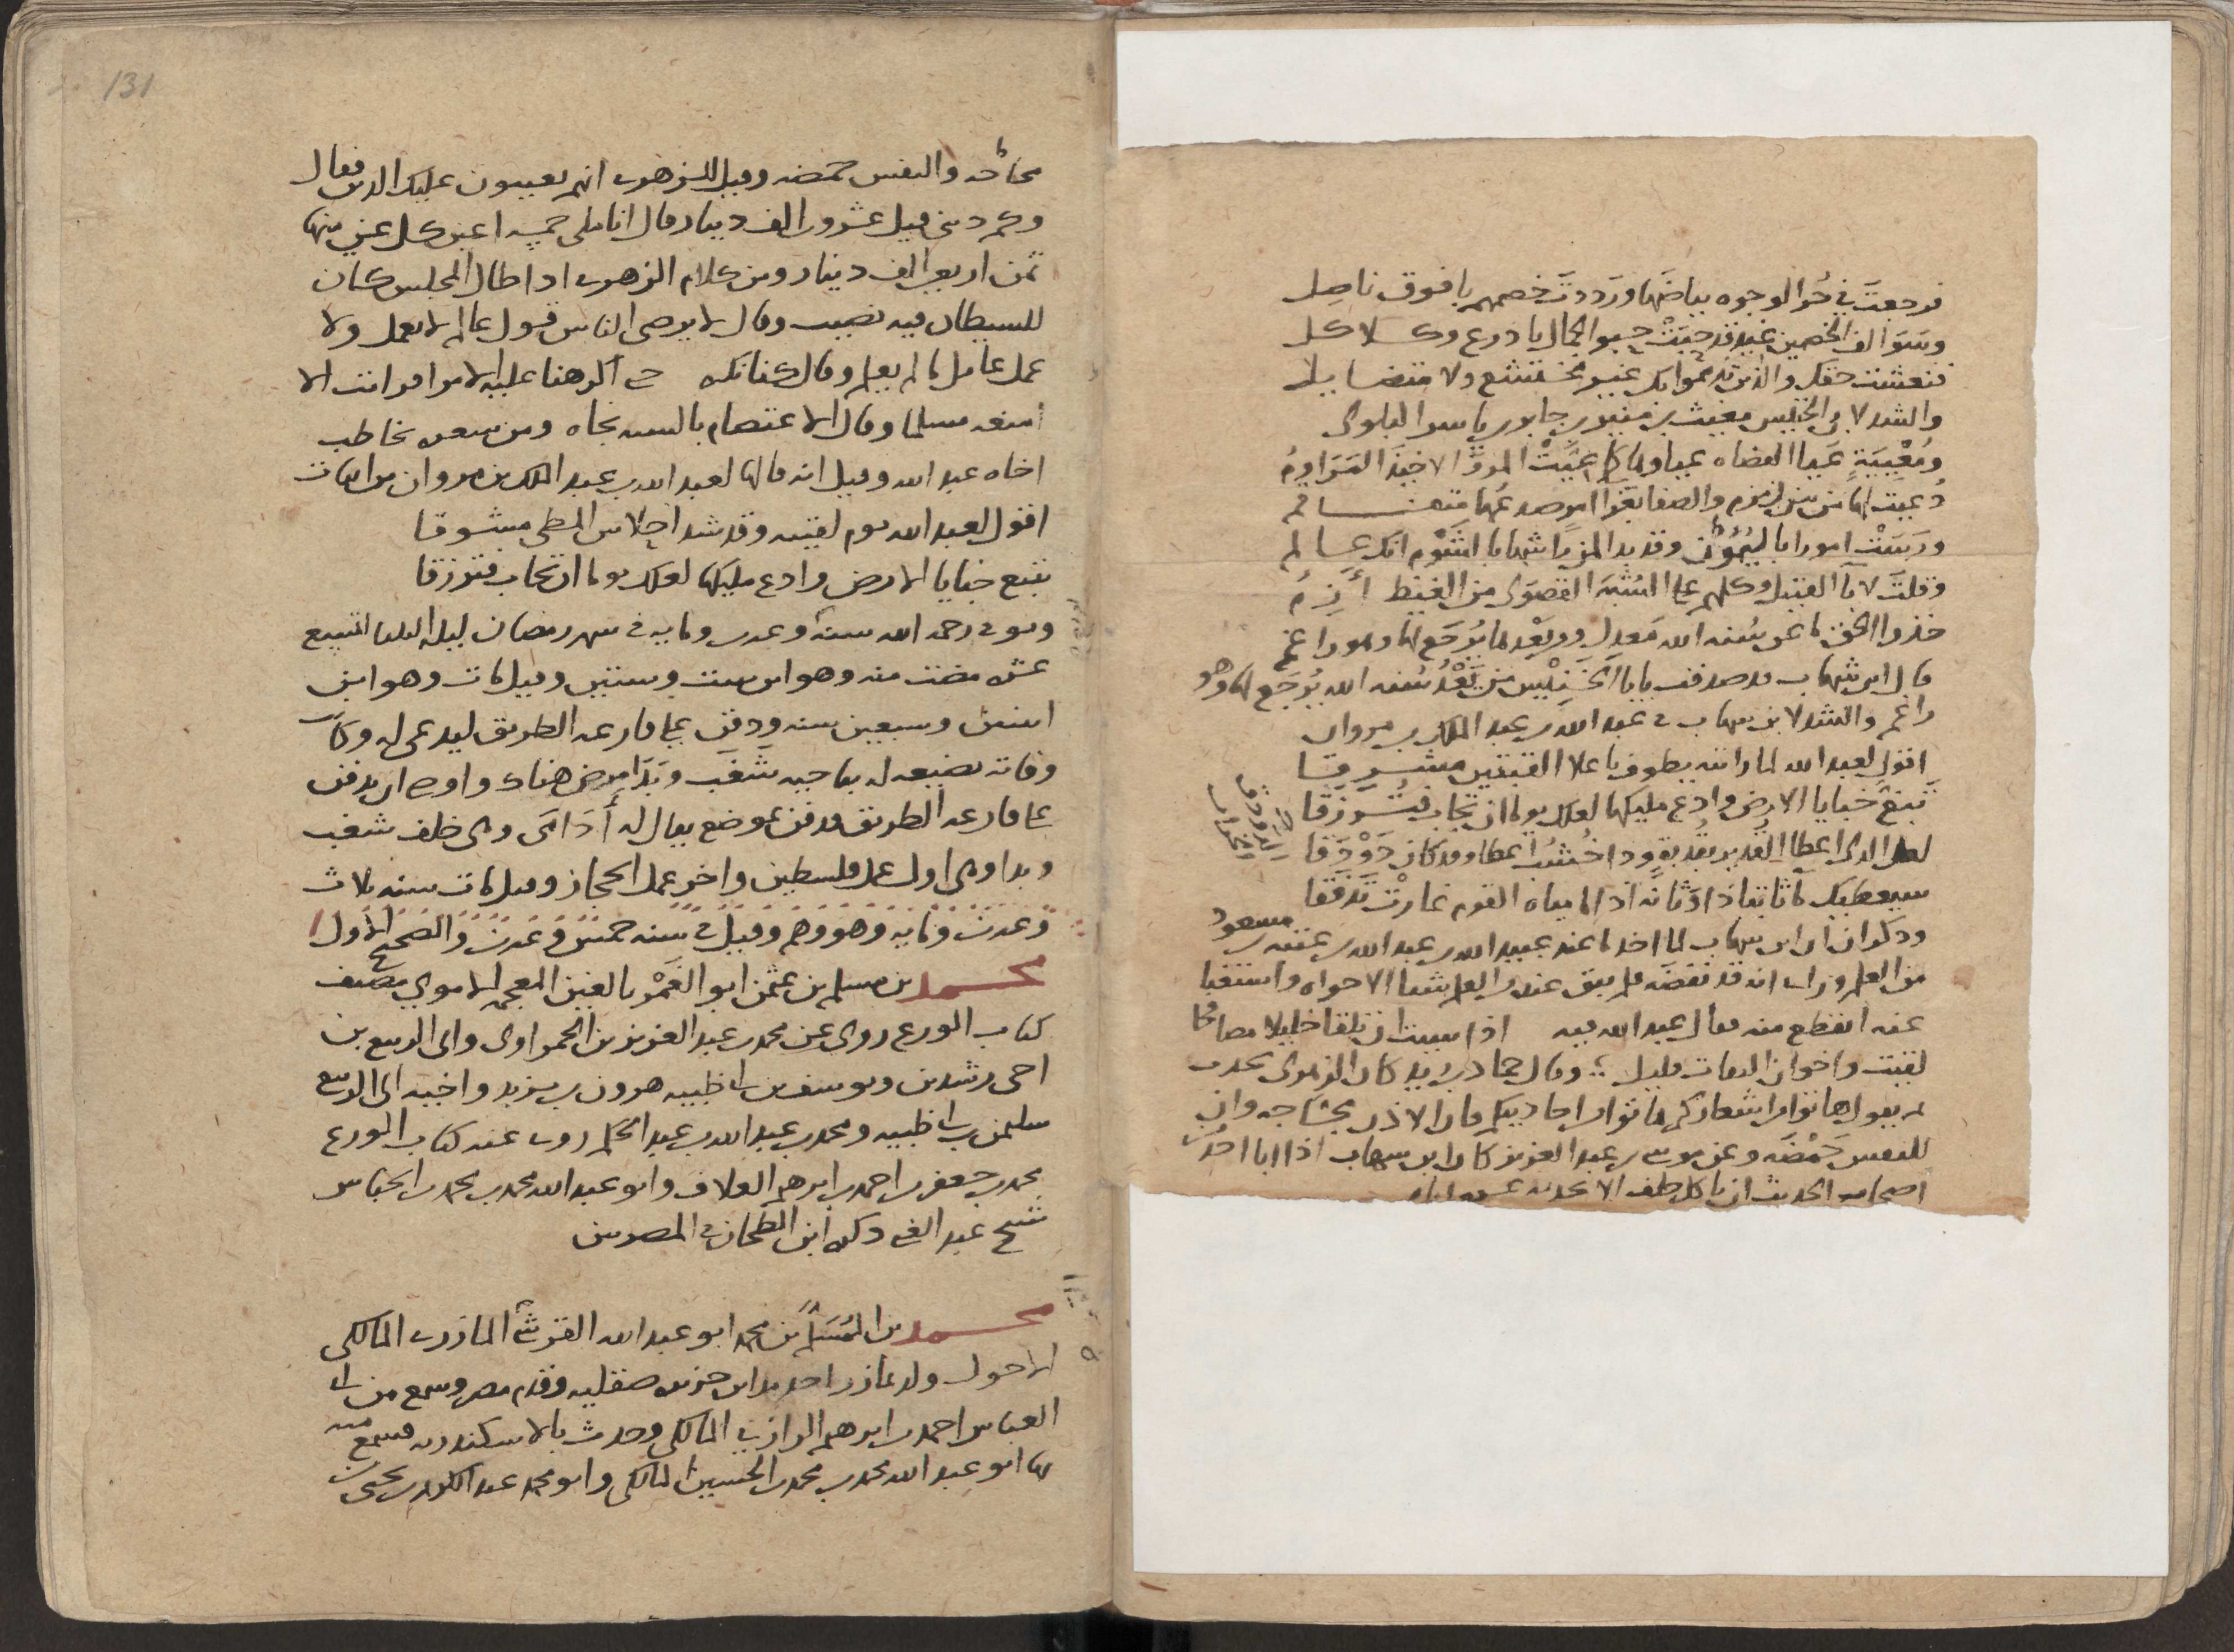 فرجعتَ في حُوّ الوجوه بياضَها ورَددتَ خصمهم بافوق ناصِل
وسَوَالف الخصمين غيد قد حَبَتْ حبو الجمال باذرع وكلاكل
فنعشت حقك والذين تهموا بك غير مختشع ولا متضايل
وانشد لابي الجليس مغيث بن منير بن جابر بن ياسر البلوى
ومُعْيِيَةٍ عَيا القضاه عياوها كما عَيَّتْ المود الاخبدَ
دُعيتَ لها من بين زمزم والصفا
ودَبَّتْ امورا
وقلتَ لابا القتيل وكلهم على الشبه القصوى من الغيظ أَزِمُ
خذوا الحق ما عن سُنه الله مَعدِل ومن يَعْد ما يُرجَع لها وهو راغم
قال ابن شهاب قد صدقت يا با الجليس من يَعْدُ سُنه الله يُرجَع لها وهو
راغم وانشد لابن شهاب في عبد الله بن عبد الملك بن مروان
اقول لعبد الله لما رايته يطوف باعلا القنتين مشرقا
تَبَغّ خبايا الارض وادع مليكها لعلك يوما ان تجاب فتُرزقا
لعل الذى اعطا القدير بقدره وذا خُشُب اعطا وقد كان دَوْدَقا
سيعطيك مالا ثابتا ذا وَثَاثَه اذا ما مياه القوم غارتْ تَدَفّقا
وذكر ان ابن شهاب لما اخذ ما عند عبيد الله بن عبد الله بن عتبه بن مسعود
من العلم وراى انه قد نقضه فلم يبق عنده من العلم شيا الا حواه واستغنا
عنه انقطع منه فقال عبيد الله فيه اذا شيت ان تلقا خليلا مصافحا
لقيت واخوان الثقات قليل ؛ وقال حماد بن زيد كان الزهرى يحدث
ثم يقول هاتوا من اشعاركم هاتوا من احاديثكم فان الاذن مجاجه وان
للنفس حَمْضَه وعن موسى بن عبد العزيز كان ابن شهاب اذا ابا احد من
اصحاب الحديث ان ياكل طعامه حلف الا يحدثه عشره ايام
131
مجاجه والنفس حمضه وقيل للزهرى انهم يعيبون عليك الدين فقال
وكم دينى قيل عشرون الف دينار قال انا ملى لى خمسه اعين كل عين منها
ثمن اربعين الف دينار ومن كلام الزهرى اذا طال المجلس كان
للشيطان فيه نصيب وقال لا يرضى الناس قول عالم لا يعمل ولا
عمل عامل ما لم يعلم وقال كنا نكره حتى اكرهنا عليه الامرا فرايت الا
امنعه مسلما وقال الاعتصام بالسنه نجاه ومن شعره يخاطب
اخاه عبد الله وقيل انه قالها لعبد الله بن عبد الملك بن مروان من ابيات
اقول لعبد الله يوم لقيته وقد شد احلاس المطى مشرقا
تتبع خبايا الارض وادع مليكها لعلك يوما ان تجاب فترزقا
وتوفى رحمه الله سنه وعشرين ومايه في شهر رمضان ليله الثلثا لتسع
عشره مضت منه وهو ابن ست وستين وقيل مات وهو ابن
اثنين وسبعين سنه ودفن على قارعه الطريق ليدعى له وكانت
وفاته بضيعه له بناحيه شَغْب وبَدَا مرض هناك واوصى ان يدفن
على قارعه الطريق فدفن بموضع يقال له أَدَامَى وهى خلف شغب
وبدا وهى اول عمل فلسطين واخر عمل الحجاز وقيل مات سنه ثلاث
وعشرين ومايه وهو وهم وقيل في سنه خمس وعشرين والصحيح الاول
محمد بن مسلم بن عثمن ابو الغَمْر بالغين المعجمه الاموي مصنف
كتاب الورع روى عن محمد بن عبد العزيز بن الحمراوى وابى الربيع بن
اخى رشدين ويوسف بن ابى ظبيه هرون بن يزيد واخيه ابى الربيع
سليمن بن ابى ظبيه ومحمد بن عبد الله بن عبد الحكم روى عنه كتاب الورع
محمد بن جعفر بن احمد بن ابرهيم العلاف وابو عبد الله محمد بن محمد بن الخياش
شيخ عبد الغنى ذكره ابن الطحان في المصريين
محمد بن المُسَلّم بن محمد ابو عبد الله القرشى المازرى المالكى
الاحول ولد بمازر احد مداين جزيره صقليه وقدم مصر وسمع من ابى
العباس احمد بن ابرهيم الرازى المالكى وحدث بالاسكندريه فسمع منه
بها ابو عبد الله محمد بن محمد بن الحسين المالكى وابو محمد عبد الكريم بن يحيى بن